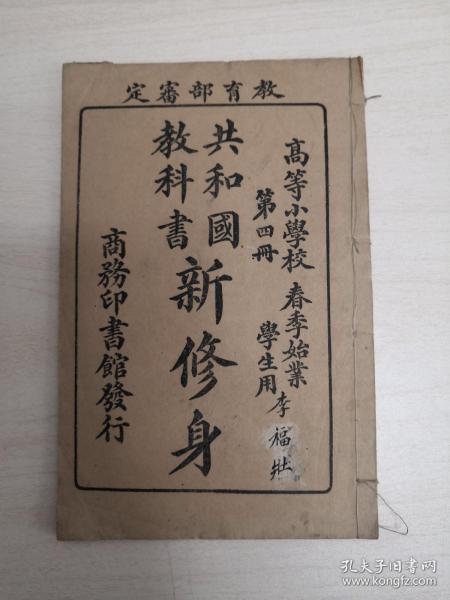 教育部審定
高等小學校 春季始業
第四冊 學生用
李福壯
共和國
教科書
新修身
商務印書館發行
孔夫子旧书网
www.kongfz.com